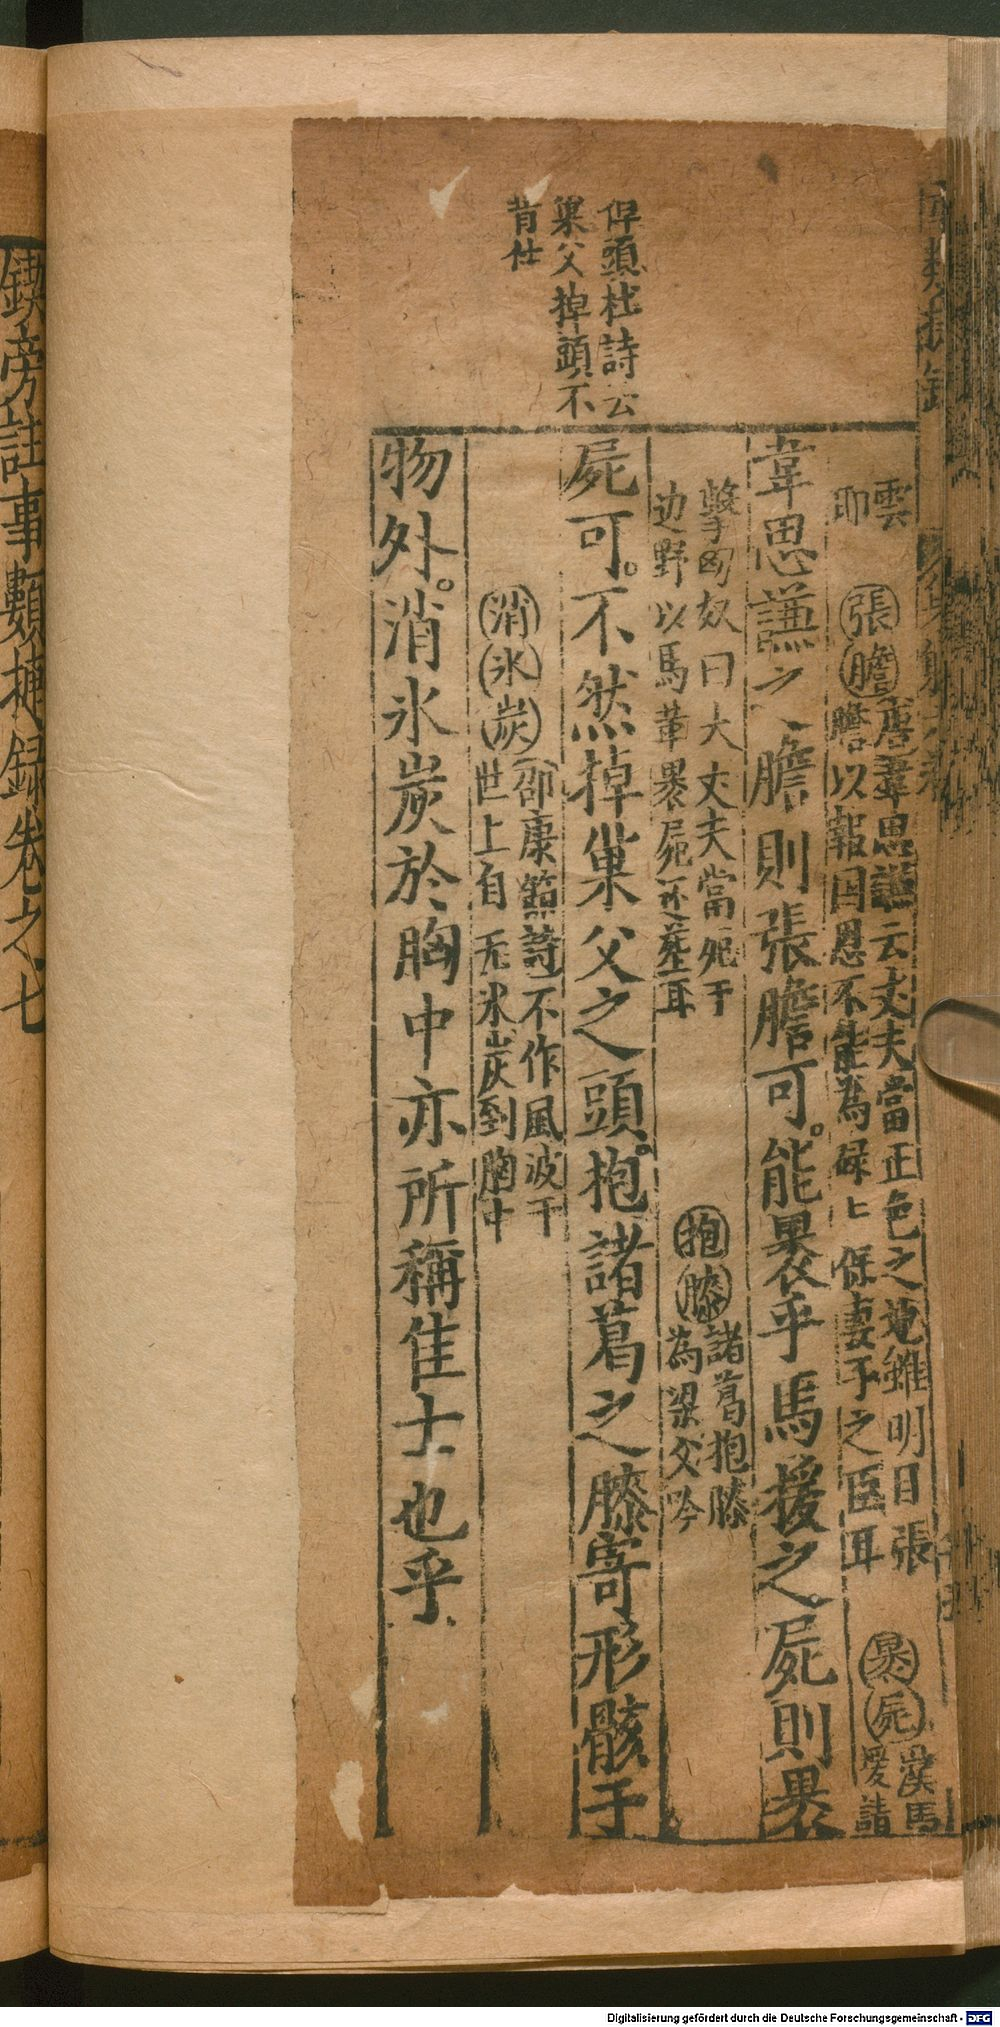 雲
耶
張膽唐韋思謙云丈夫當正色之地雖明目張
膽以報国恩不能為碌〻保妻子之臣耳
裹屍漢馬
援請
韋思謙之膽則張膽可能裹乎馬援之屍則裹
擊匈奴曰大丈夫當死于
边野以馬革裹屍还葬耳
抱膝諸葛抱膝
為梁父吟
屍可不然掉巢父之頭抱諸葛之膝寄形骸于
消氷炭邵康節詩不作風波于
世上自无氷炭到胸中
物外消氷炭於胸中亦所稱隹士也乎
掉頭杜詩云
巢父掉頭不
肯仕
鍥旁註事類捷録卷之七
Digitalisierung gefördert durch die Deutsche Forschungsgemeinschaft - DFG